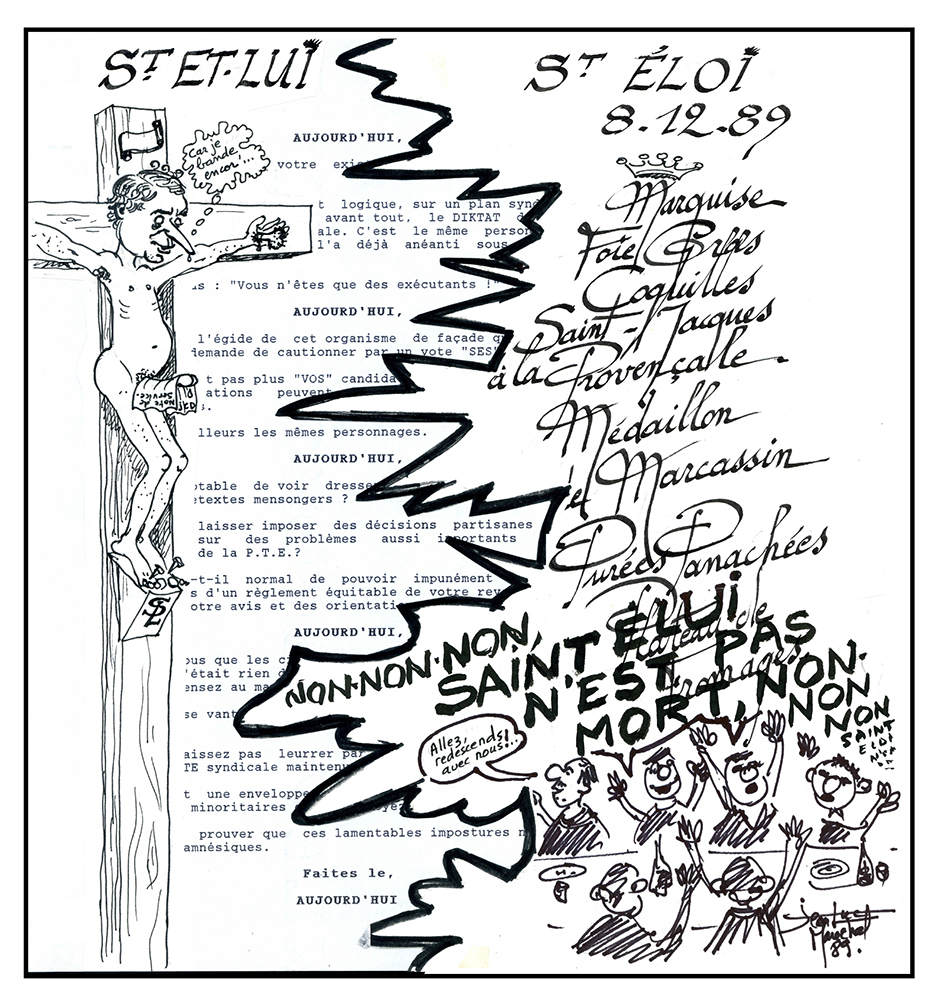 ST ET-LUÏ
car je
bande
encor'...
AUJOURD'HUI,
votre
t logique, sur un plan synd
avant tout, le DIKTAT
ale. C'est le même person
l'a déjà anéanti sous
s : "Vous n'êtes que des exécutants !"
AUJOURD'HUI,
l'égide de cet organisme de façade
demande de cautionner par un vote "SES"
t pas plus "VOS" candida
ations peuvent
s.
lleurs les mêmes personnages.
AUJOURD'HUI,
otable de voir dresse
étextes mensongers ?
laisser imposer des décisions partisanes
sur des problèmes aussi importants
de la P.T.E.?
-t-il normal de pouvoir impunément
s d'un règlement équitable de votre rev
otre avis et des orientati
AUJOURD'HUI,
ous que les
'était rien
ensez au
se vant
aissez pas leurrer par
TE syndicale mainten
t une enveloppe
minoritaires
prouver que ces lamentables impostures n
amnésiques.
Faites le,
AUJOURD'HUI
Note de
Service
ST ÉLOÏ
8.12.89
Marquise
Foie Gras
Coquilles
Saint-Jacques
à la Provençalle.
Médaillon
de Marcassin
Purées Panachées
Plateau de
Fromages
NON-NON-NON,
SAINT ÉLUÏ
N'EST PAS
MORT, NON-
NON
NON
SAINT
ELOI
N'EST
Allez,
redescends
avec nous!..
Jean Luc
Marechal
89.